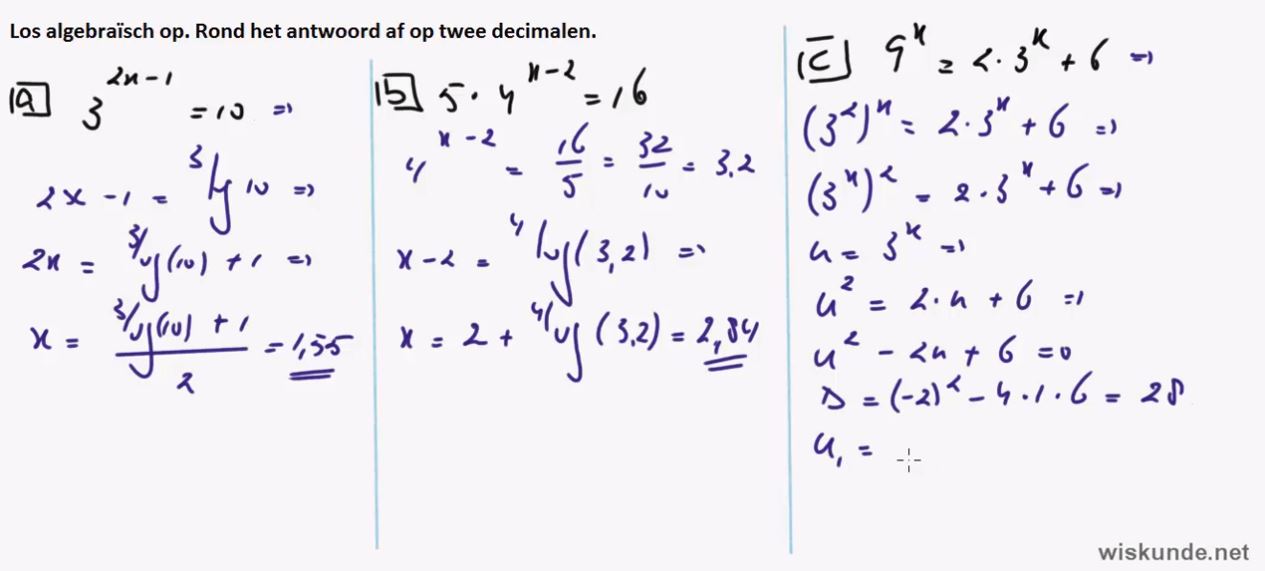 Los algebraïsch op. Rond het antwoord af op twee decimalen.
a 3^(2x-1) = 10 ⇒
2x - 1 = ³log 10 ⇒
2x = ³log(10) + 1 ⇒
x = (³log(10) + 1)/2 = 1,55
b 5 · 4^(x-2) = 16
4^(x-2) = 16/5 = 32/10 = 3,2
x - 2 = ⁴log(3,2) ⇒
x = 2 + ⁴log(3,2) = 2,84
c 9^x = 2 · 3^x + 6 ⇒
(3²)^x = 2 · 3^x + 6 ⇒
(3^x)² = 2 · 3^x + 6 ⇒
u = 3^x ⇒
u² = 2 · u + 6 ⇒
u² - 2u + 6 = 0
D = (-2)² - 4 · 1 · 6 = 28
u₁ =
wiskunde.net